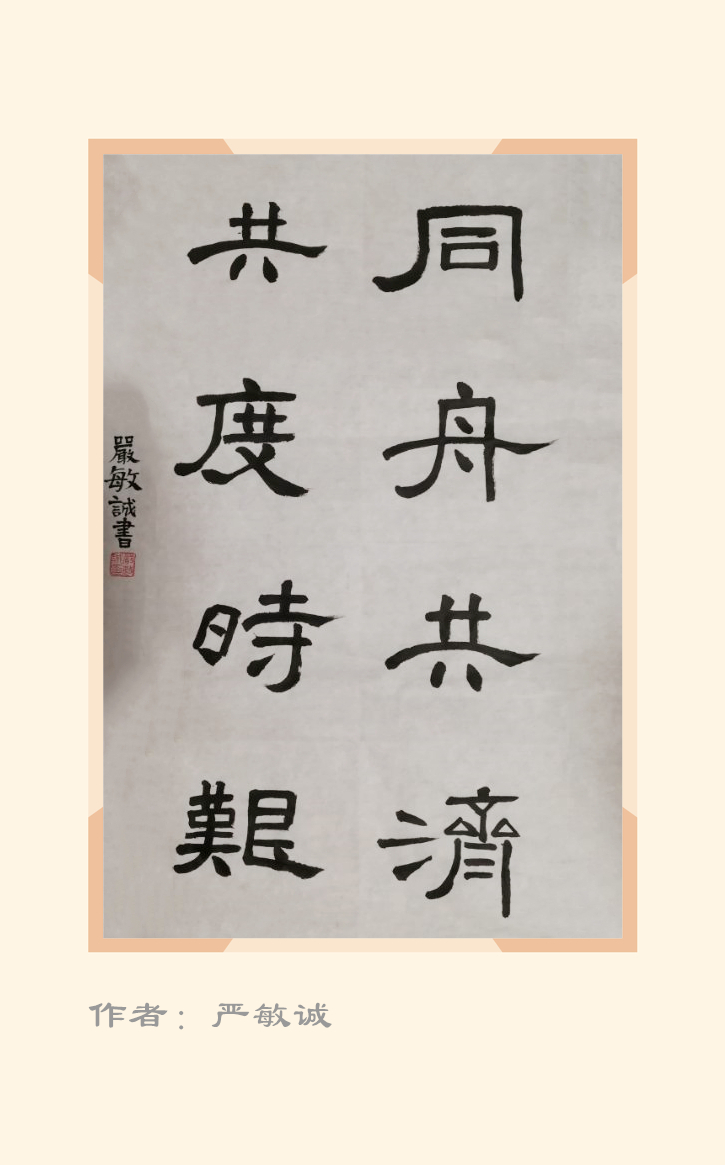 同舟共濟
共度時艱
嚴敏誠書
作者：严敏诚